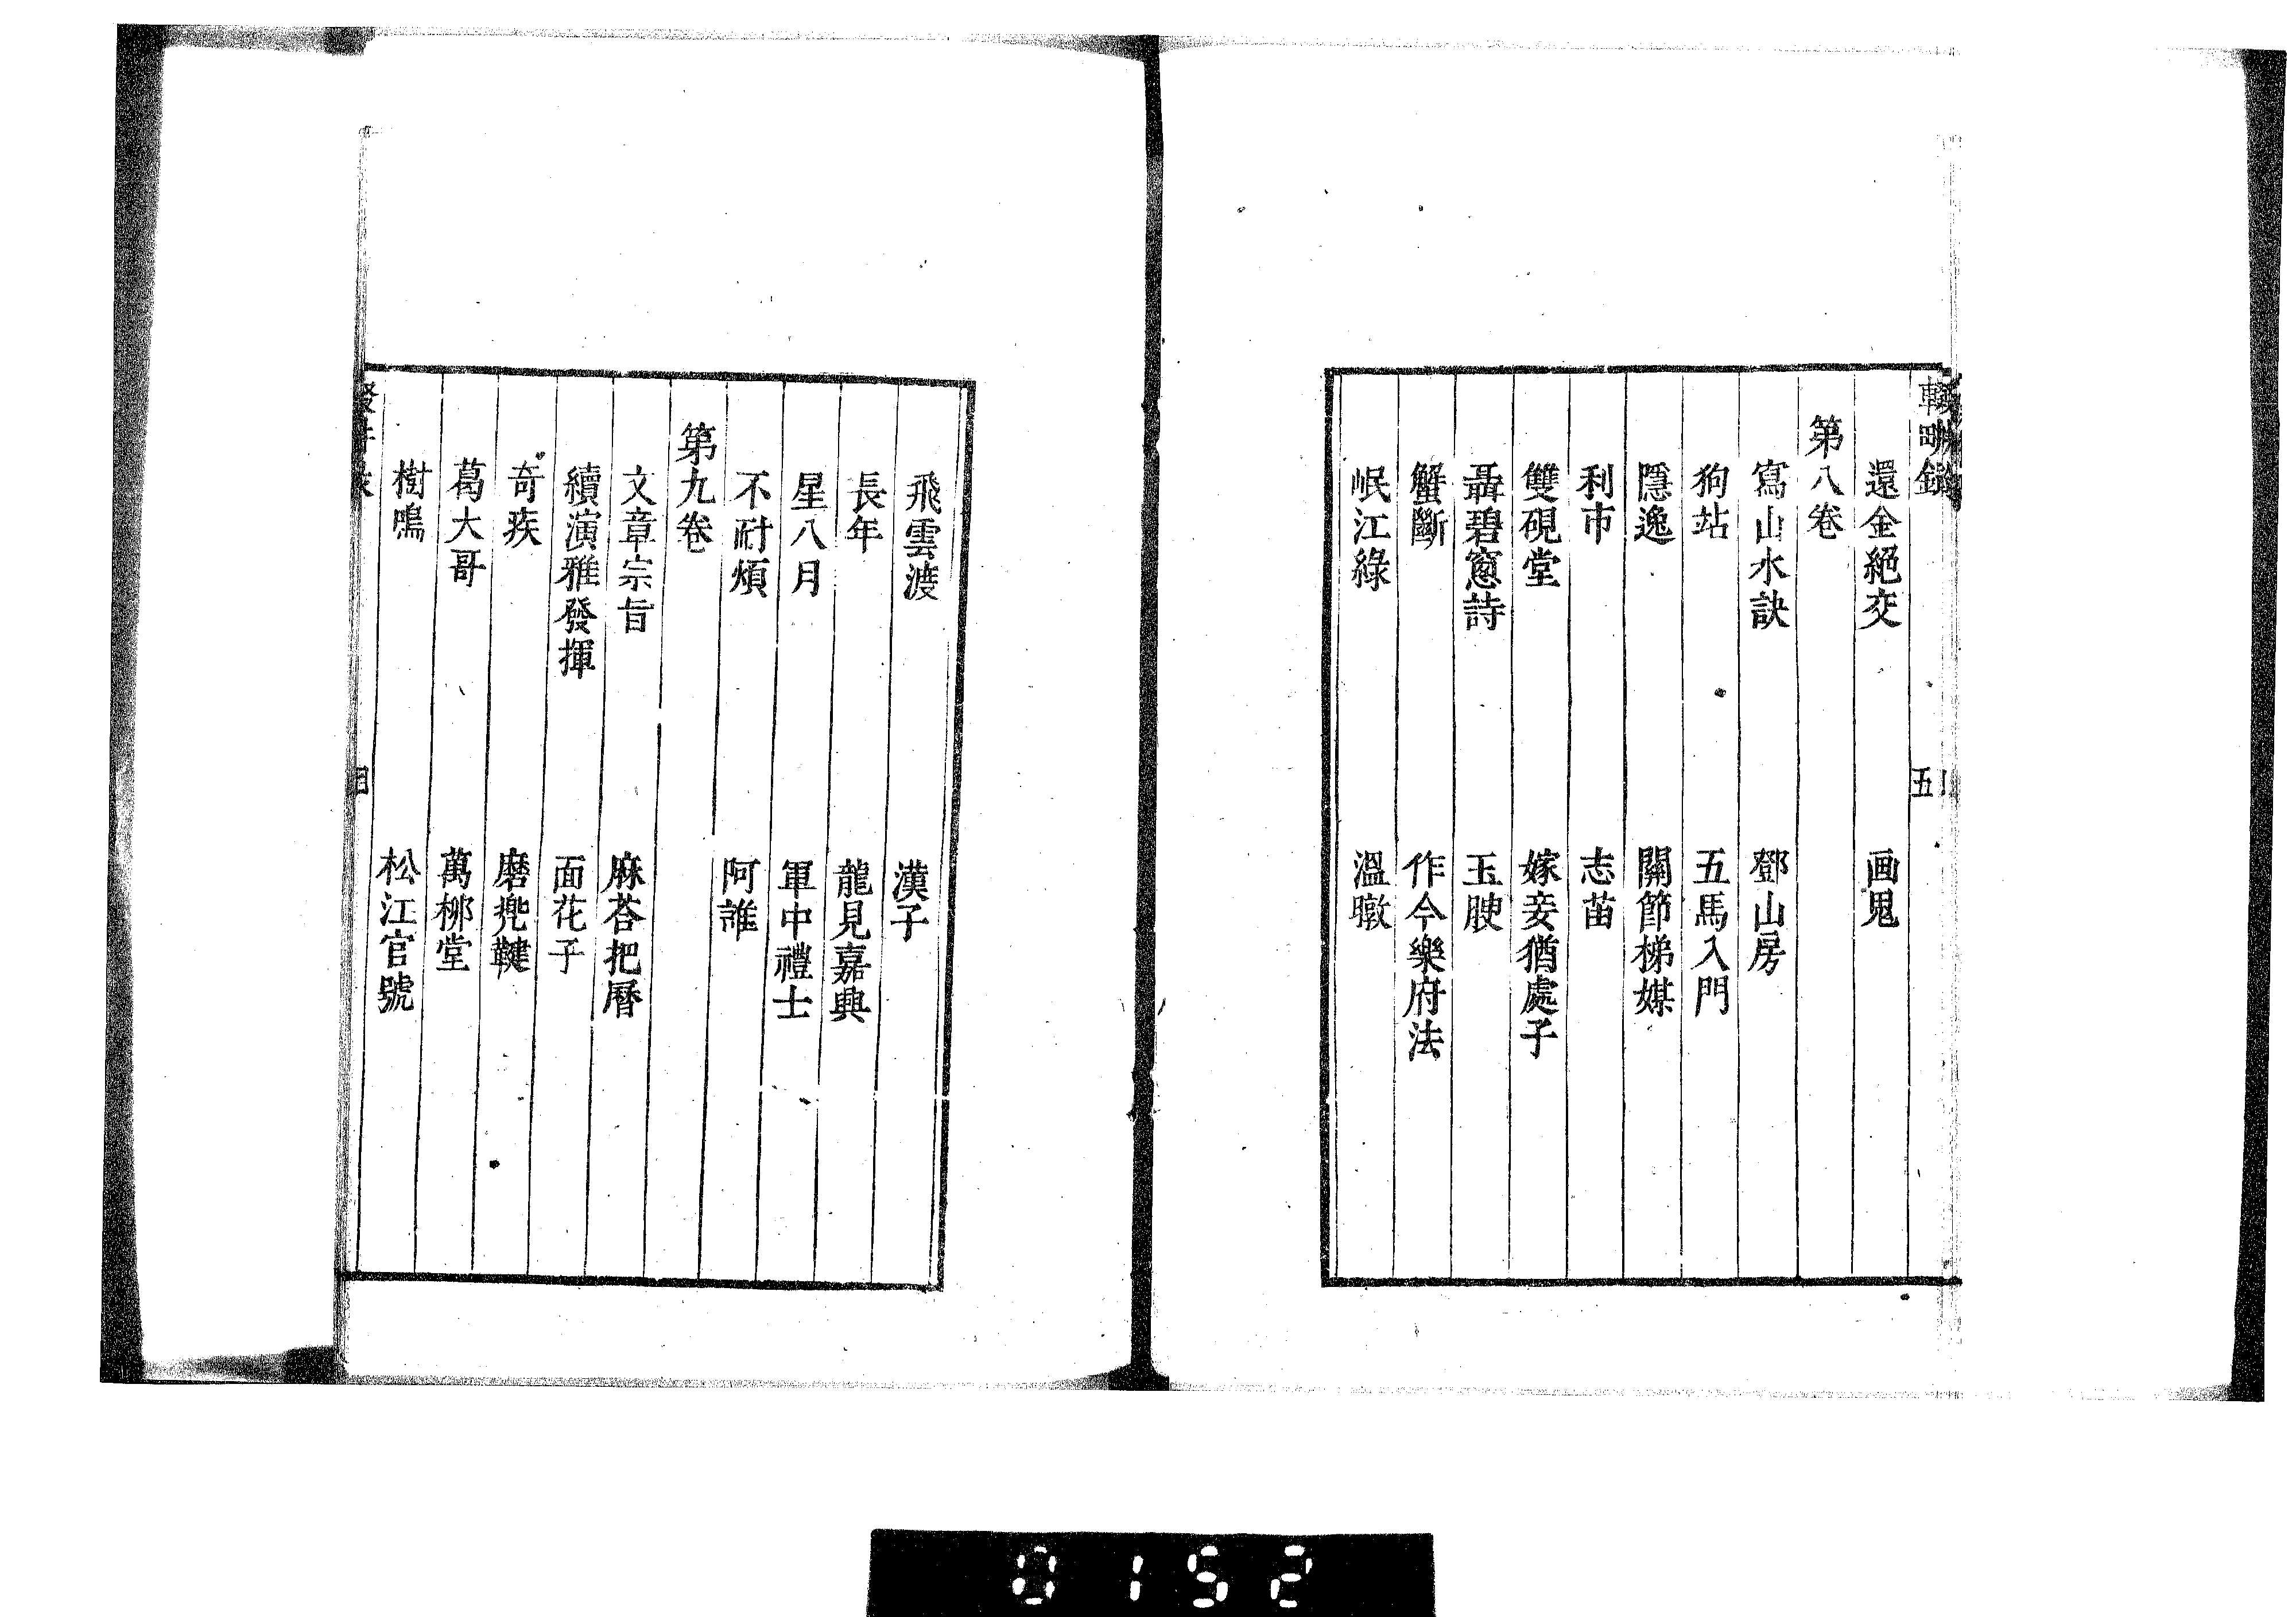 輟畊録
五
還金絕交　画鬼
第八卷
寫山水訣　鄧山房
狗站　五馬入門
隱逸　關節梯媒
利市　志苗
雙硯堂　嫁妾猶處子
聶碧窻詩　玉腴
蟹斷　作今樂府法
岷江綠　溫暾
飛雲渡　漢子
長年　龍見嘉興
星八月　軍中禮士
不耐煩　阿誰
第九卷
文章宗旨　麻荅把曆
續演雅發揮　面花子
奇疾　磨兠鞬
葛大哥　萬柳堂
樹鳴　松江官號
0152